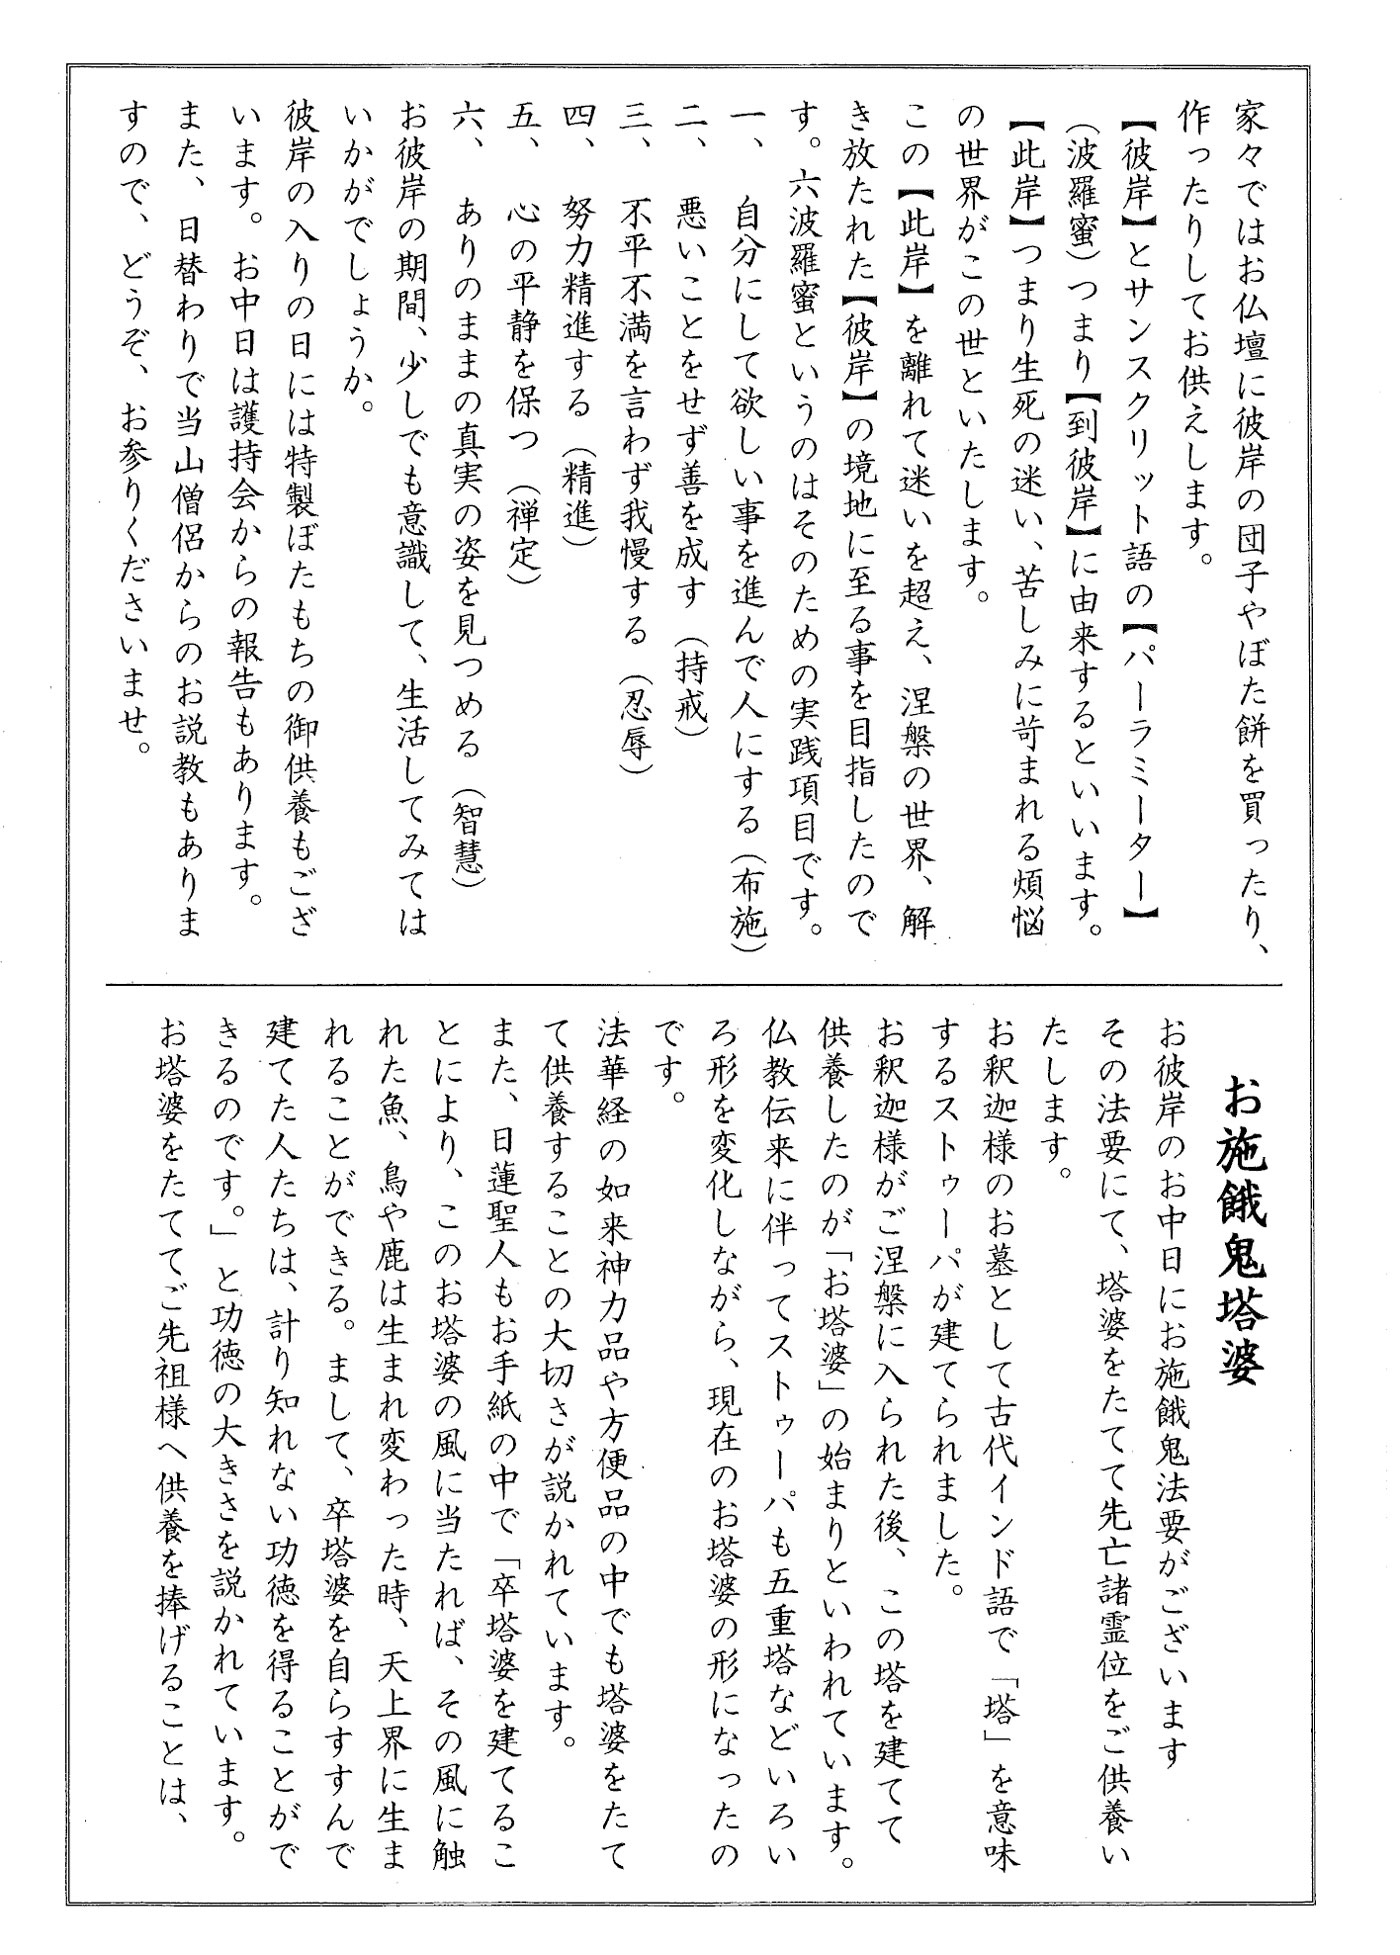 家々ではお仏壇に彼岸の団子やぼた餅を買ったり、
作ったりしてお供えします。
【彼岸】とサンスクリット語の【パーラミーター】
（波羅蜜）つまり【到彼岸】に由来するといいます。
【此岸】つまり生死の迷い、苦しみに苛まれる煩悩
の世界がこの世といたします。
この【此岸】を離れて迷いを超え、涅槃の世界、解
き放たれた【彼岸】の境地に至る事を目指したので
す。六波羅蜜というのはそのための実践項目です。
一、　自分にして欲しい事を進んで人にする（布施）
二、　悪いことをせず善を成す（持戒）
三、　不平不満を言わず我慢する（忍辱）
四、　努力精進する（精進）
五、　心の平静を保つ（禅定）
六、　ありのままの真実の姿を見つめる（智慧）
お彼岸の期間、少しでも意識して、生活してみては
いかがでしょうか。
彼岸の入りの日には特製ぼたもちの御供養もござ
います。お中日は護持会からの報告もあります。
また、日替わりで当山僧侶からのお説教もありま
すので、どうぞ、お参りくださいませ。
お施餓鬼塔婆
お彼岸のお中日にお施餓鬼法要がございます
その法要にて、塔婆をたてて先亡諸霊位をご供養い
たします。
お釈迦様のお墓として古代インド語で「塔」を意味
するストゥーパが建てられました。
お釈迦様がご涅槃に入られた後、この塔を建てて
供養したのが「お塔婆」の始まりといわれています。
仏教伝来に伴ってストゥーパも五重塔などいろい
ろ形を変化しながら、現在のお塔婆の形になったの
です。
法華経の如来神力品や方便品の中でも塔婆をたて
て供養することの大切さが説かれています。
また、日蓮聖人もお手紙の中で「卒塔婆を建てるこ
とにより、このお塔婆の風に当たれば、その風に触
れた魚、鳥や鹿は生まれ変わった時、天上界に生ま
れることができる。まして、卒塔婆を自らすすんで
建てた人たちは、計り知れない功徳を得ることがで
きるのです。」と功徳の大きさを説かれています。
お塔婆をたててご先祖様へ供養を捧げることは、